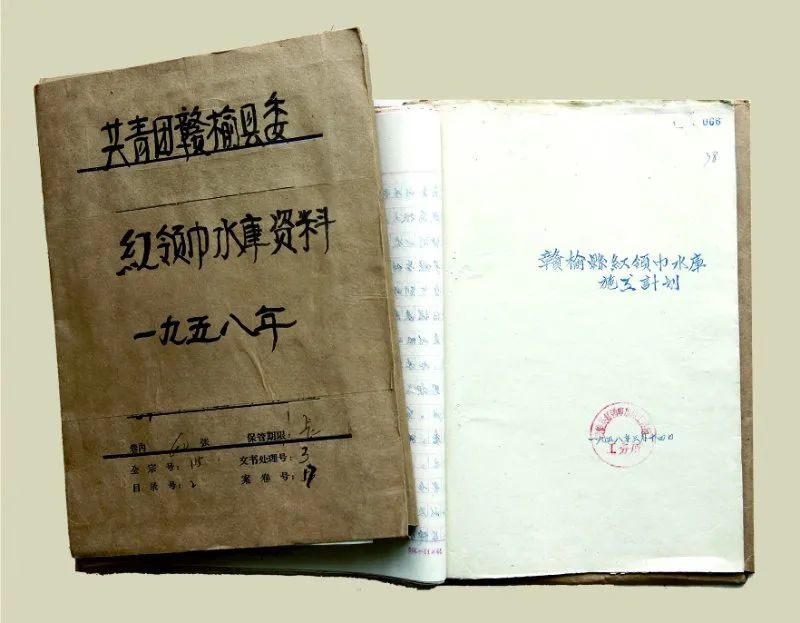 共青团赣榆县委
红领巾水库资料
一九五八年
卷内 张 保管期限:
全宗号:15 文书处理号:3
目录号:2 案卷号:
066
38
贛榆縣紅領巾水庫
施工計划
一九五八年三月廿四日